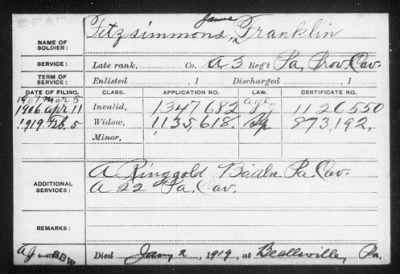 James
NAME OF SOLDIER: Fitzsimmons, Franklin
SERVICE: Late rank, Co. A 3 Reg't Pa. Prov. Cav.
TERM OF SERVICE: Enlisted , 1 Discharged , 1
DATE OF FILING. CLASS. APPLICATION NO. LAW. CERTIFICATE NO.
1901 Mar 5
1906 Apr 11 Invalid, 1347682 age 1126550
1919 Feb. 5 Widow, 1135,618. 873,192.
Minor,
ADDITIONAL SERVICES: A Ringgold Battln Pa. Cav.
A 22 Pa. Cav.
REMARKS:
Died Jany 2, 1919, at Beallsville, Pa.